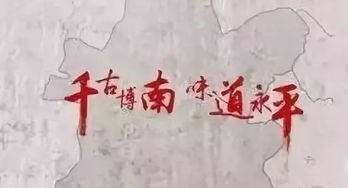 千古博南 味道永平